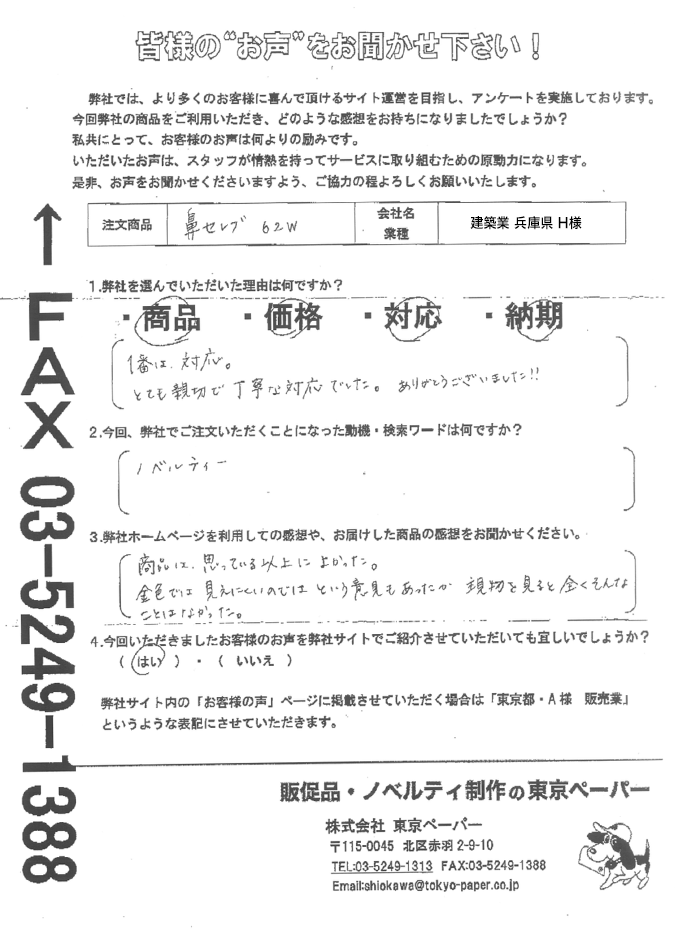 皆様の“お声”をお聞かせ下さい！
弊社では、より多くのお客様に喜んで頂けるサイト運営を目指し、アンケートを実施しております。
今回弊社の商品をご利用いただき、どのような感想をお持ちになりましたでしょうか？
私共にとって、お客様のお声は何よりの励みです。
いただいたお声は、スタッフが情熱を持ってサービスに取り組むための原動力になります。
是非、お声をお聞かせくださいますよう、ご協力の程よろしくお願いいたします。
注文商品 鼻セレブ 62W 会社名 業種 建築業 兵庫県 H様
↑ FAX 03-5249-1388
1.弊社を選んでいただいた理由は何ですか？
・商品 ・価格 ・対応 ・納期
1番は、対応。
とても親切で丁寧な対応でした。ありがとうございました!!
2.今回、弊社でご注文いただくことになった動機・検索ワードは何ですか？
ノベルティー
3.弊社ホームページを利用しての感想や、お届けした商品の感想をお聞かせください。
商品は、思っている以上によかった。
金色では見えにくいのではという意見もあったが現物を見ると全くそんな
ことはなかった。
4.今回いただきましたお客様のお声を弊社サイトでご紹介させていただいても宜しいでしょうか？
（ はい ）・（ いいえ ）
弊社サイト内の「お客様の声」ページに掲載させていただく場合は「東京都・A様 販売業」
というような表記にさせていただきます。
販促品・ノベルティ制作の東京ペーパー
株式会社 東京ペーパー
〒115-0045 北区赤羽2-9-10
TEL:03-5249-1313 FAX:03-5249-1388
Email:shiokawa@tokyo-paper.co.jp